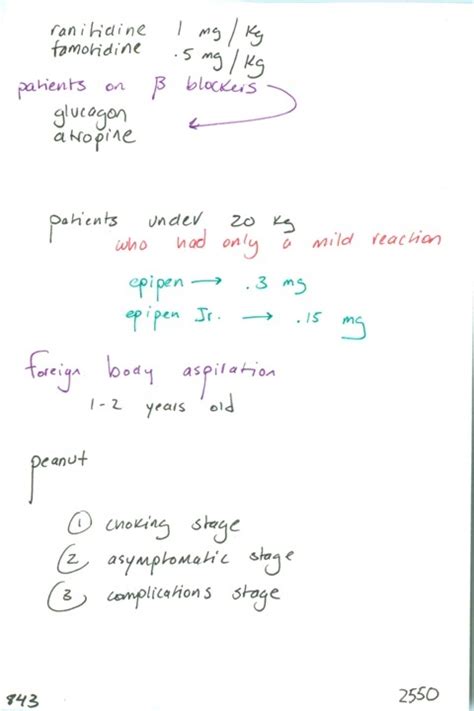 ranitidine 1 mg/kg
famotidine .5 mg/kg
patients on β blockers
glucagon
atropine
patients under 20 kg
who had only a mild reaction
epipen → .3 mg
epipen Jr. → .15 mg
foreign body aspiration
1-2 years old
peanut
① choking stage
② asymptomatic stage
③ complications stage
843 2550